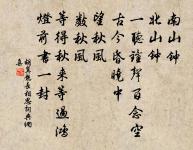 南山鐘
北山鐘
一聽鐘聲百念空
古今昏曉中
望秋風
數秋風
等得秋來等過鴻
燈前書一封
長相思